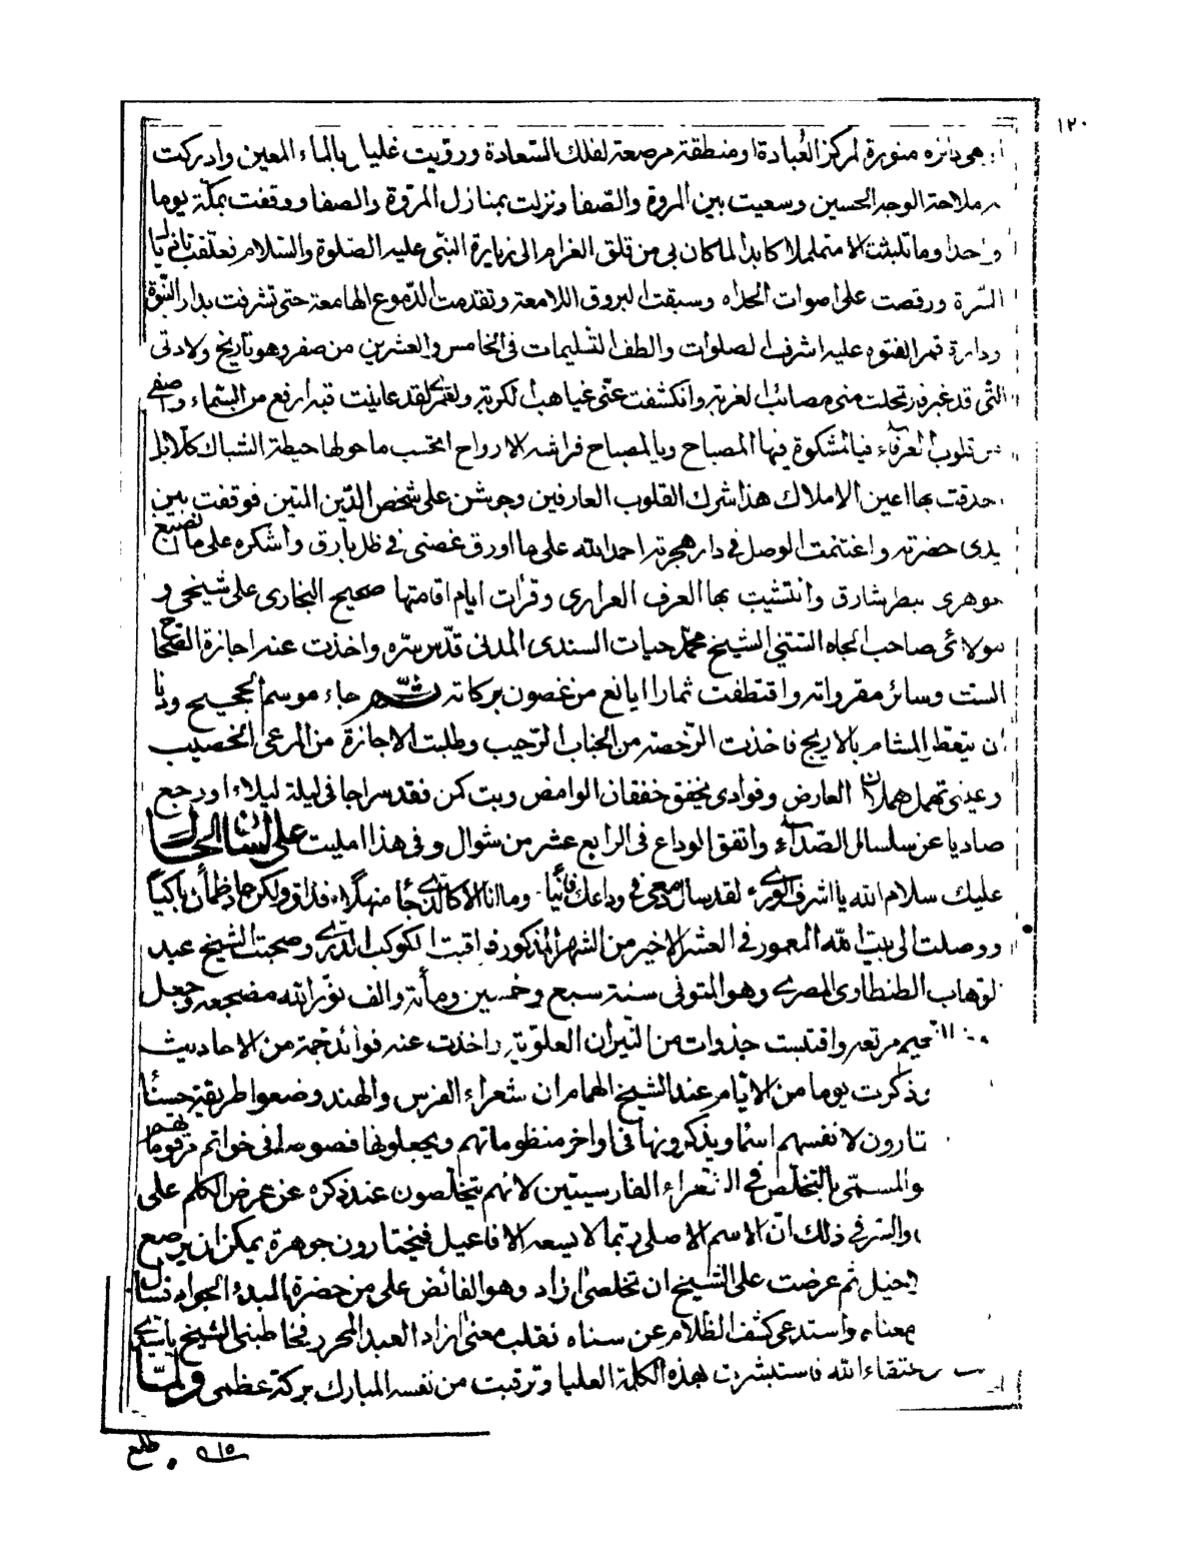 ١٢٠
هى دائره منورة لمركز العبادة او منطقة مرصعة لفلك السعادة ورويت غليلى بالماء المعين وادركت
ملاحة الوجه الحسين وسعيت بين المروة والصفا ونزلت بمنازل المروة والصفا ووقفت بمكة يوما
واحدا وما تلبثت الا متململا كابدا لما كان بى من قلق الغرام الى زيارة النبى عليه الصلوة والسلام فعلقت
السرة ورقصت على اصوات الحداه وسبقت البروق اللامعة وتقدمت الدموع الهامعة حتى تشرفت بدار النبوة
ودارة قمر الفتوه عليه اشرف الصلوات والطف التسليمات فى الخامس والعشرين من صفر وهو تاريخ ولادتى
التى قد غبر فارتحلت منى مصائب الغربة وانكشفت عنى غياهب الكربة ولعمرى لقد عاينت قبة ارفع من السماء واصفى
من قلوب العرفاء فيا لمشكوة فيها المصباح ويا لمصباح فراشه الارواح احتسب ما حولها حيطة الشباك كلا بل
احدقت بها اعين الاملاك هذا شرك القلوب العارفين وجوشن على شخص الدين المتين فوقفت بين
يدى حضرته واغتنمت الوصل فى دار هجرته احمد الله على ما اورق غصنى فى ظل بارق واشكره على ما نصيع
جوهرى بيطر شارق وانتشيت بها العرف العرارى وقرات ايام اقامتها صحيح البخارى على شيخى و
مولائى صاحب الجاه السنى الشيخ محمد حيات السندى المدنى قدس سره واخذت عنه اجازة الصحاح
الست وسائر مقرواته واقتطفت ثمارا ايانع من غصون بركاته ثم جاء موسم الحجيج ودنا
ان يتعطر المشام بالاريج فاخذت الرخصة من الجناب الرحيب وطلبت الاجازة من المرعى الخصيب
وعينى تهمل هملان العارض وفوادى يخفق خفقان الوامض وبت كمن فقد سراجا فى ليلة ليلاء او رجع
صاديا عن سلسال الصداء واتفق الوداع فى الرابع عشر من شوال وفى هذا امليت على لسان الحال
عليك سلام الله يا اشرف الورى لقد سال دمعى فى وداعك قانيا وما انا الا كالذى جاء منهلا فذاق ولكن عاد ظمأن باكيا
ووصلت الى بيت الله المعمور فى العشر الاخير من الشهر المذكور فراقبت الكوكب الدرى وصحبت الشيخ عبد
الوهاب الطنطاوى المصرى وهو المتوفى سنة سبع وخمسين ومأته والف نور الله مضجعه وجعل
النعيم مرتعه واقتبست جذوات من النيران العلوية واخذت عنه فوائد جمة من الاحاديث
وذكرت يوما من الايام عند الشيخ الهمام ان شعراء الفرس والهند وضعوا طريقة حسنا
يختارون لانفسهم اسما ويذكرونها فى اواخر منظوماتهم ويجعلونها فصوصا فى خواتم مرقوماتهم
والمسمى بالتخلص فى الشعراء الفارسيين لانهم يتخلصون عند ذكره عن عرض الكلم على
والسر فى ذلك ان الاسم الاصلى ربما لا يسعه الافاعيل فيختارون جوهرة يمكن ان يرصع
ثم عرضت على الشيخ ان تخلصى ازاد وهو الفائض على من حضرة المبدء الجواد فسال
معناه واستدعى كشف الظلام عن سناه فقلت معنى ازاد العبد المحرر فخاطبنى الشيخ يا سيدى
عتقاء الله فاستبشرت بهذه الكلمة العليا وترقبت من نفسه المبارك بركة عظمى ولما
طلع